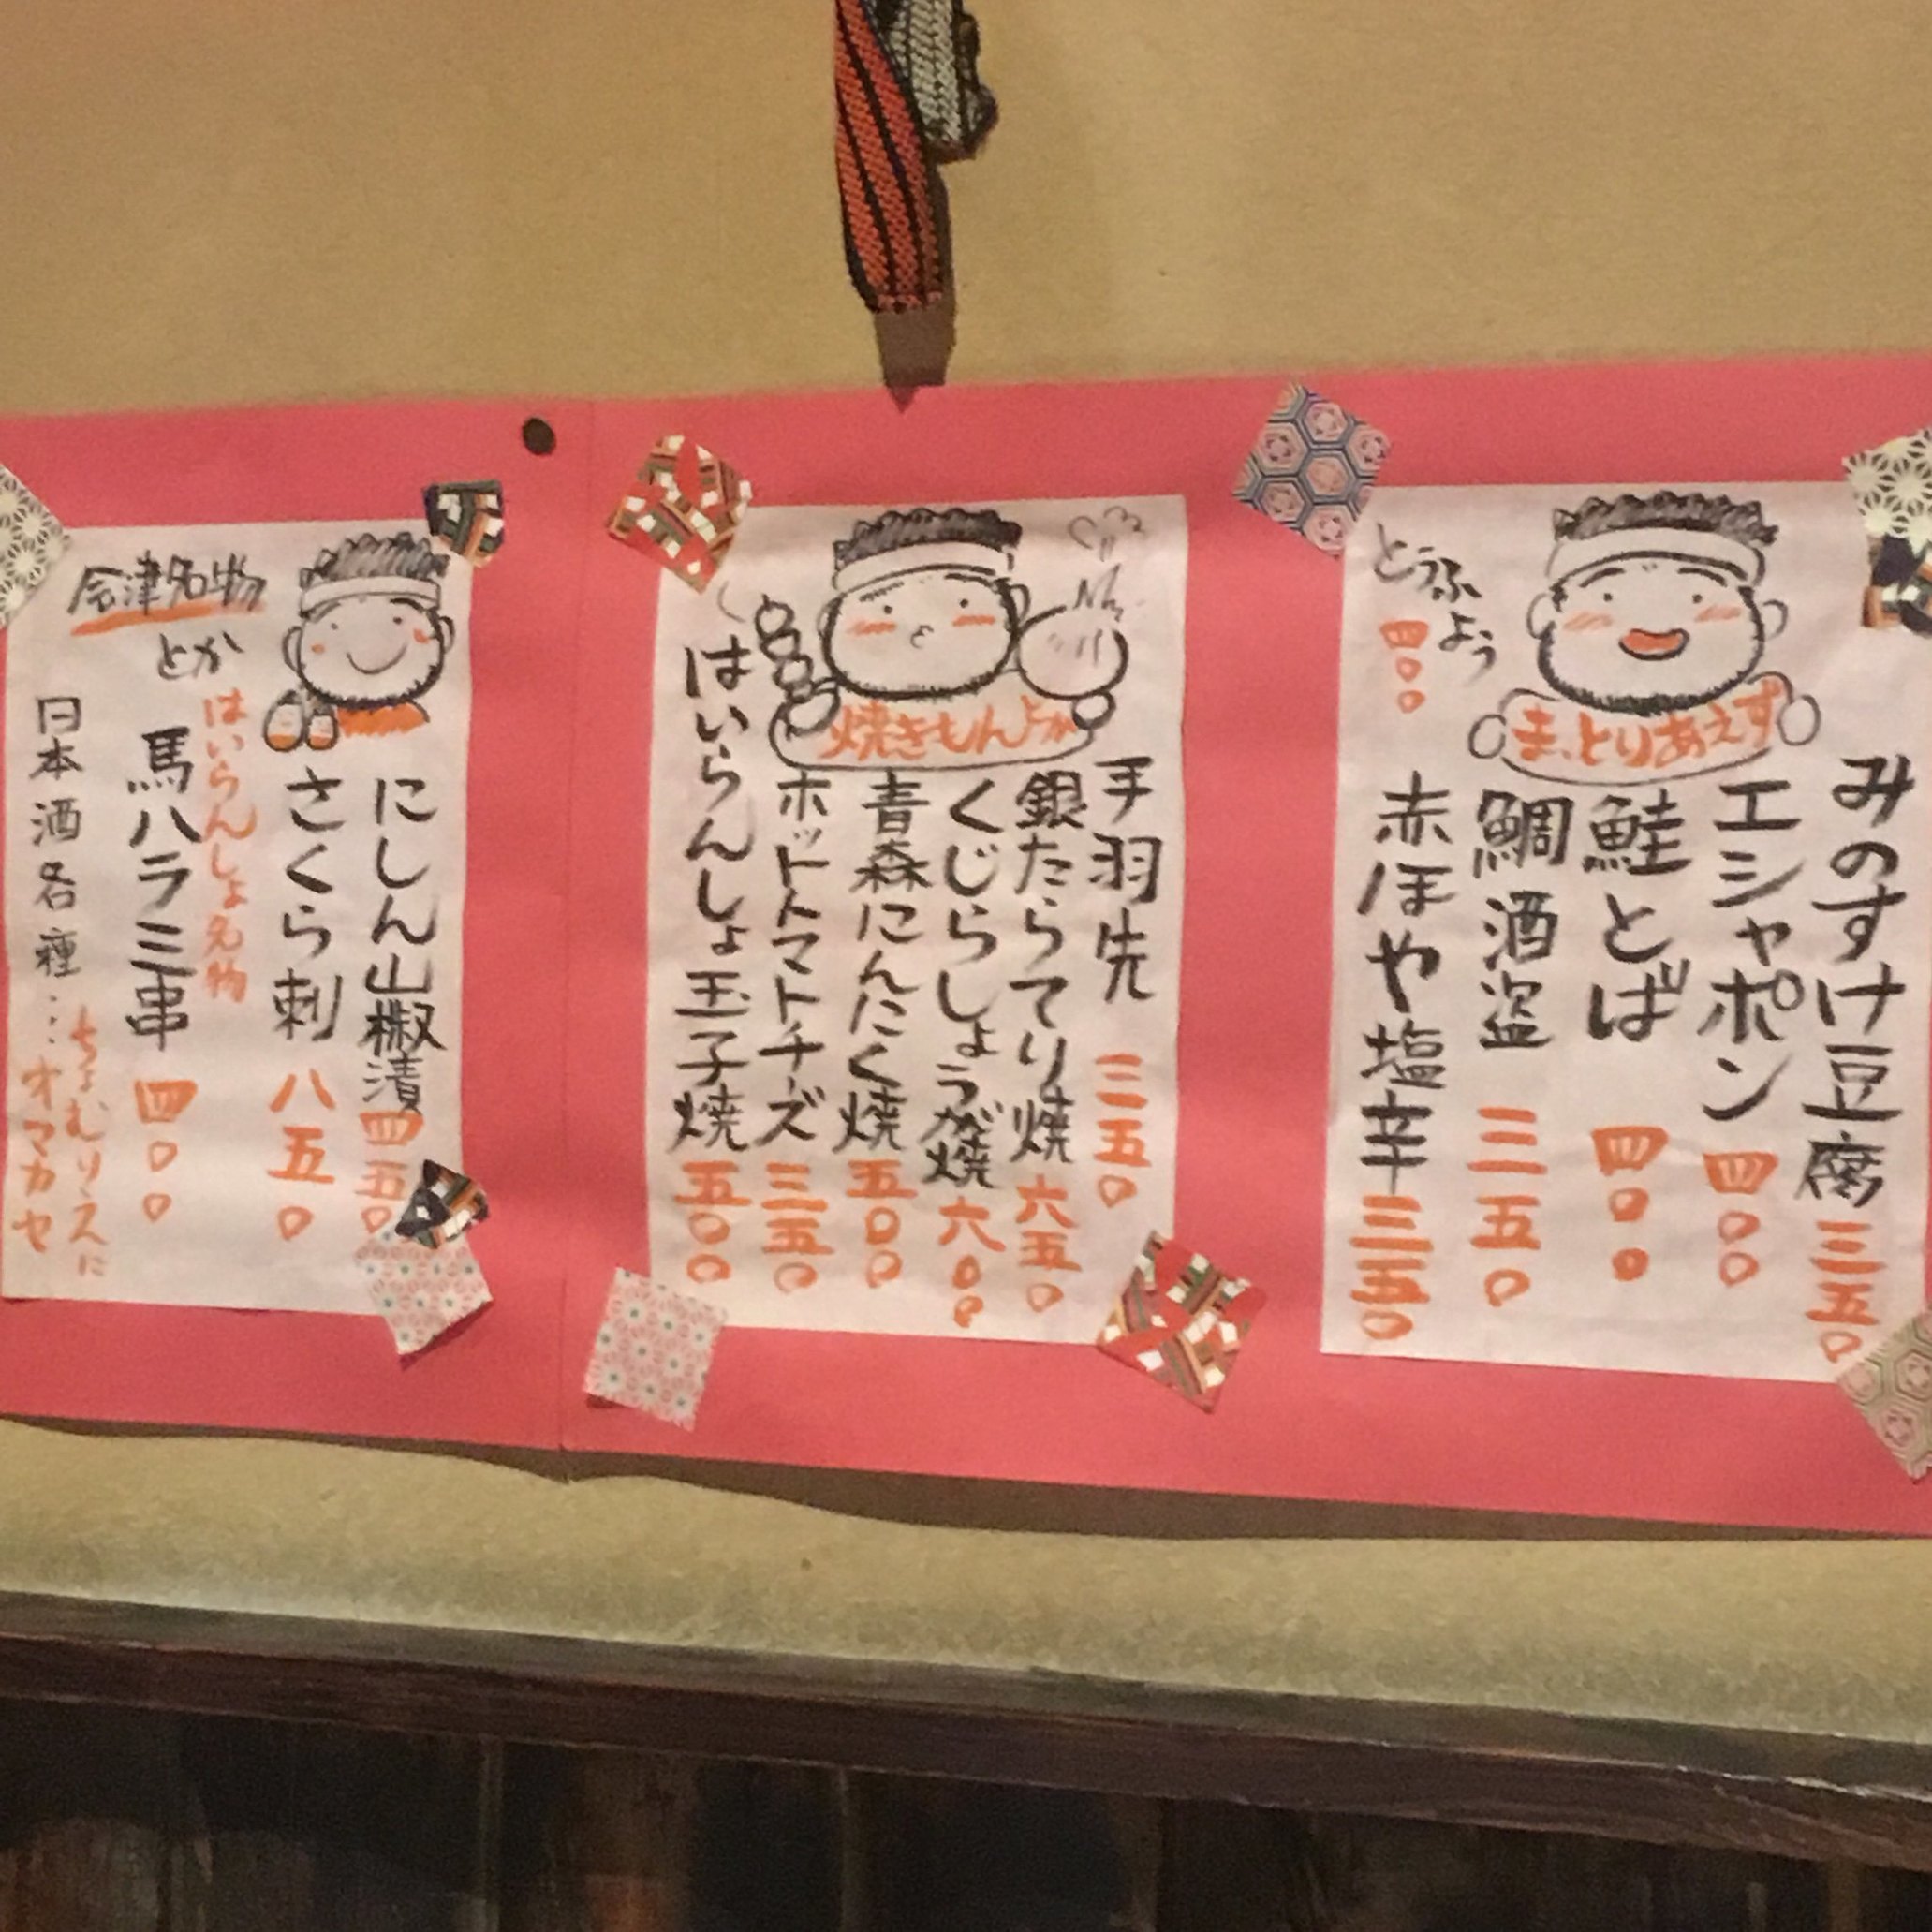 ま、とりあえず
みのすけ豆腐 三五〇
エシャポン 四〇〇
鮭とば 四〇〇
鯛酒盗 三五〇
赤ほや塩辛 三五〇
とうふよう
四〇〇
焼きもんようか
手羽先 三五〇
銀たらてり焼 六五〇
くじらしょうが焼 六〇〇
青森にんにく焼 五〇〇
ホットトマトチーズ 三五〇
はいらんしょ玉子焼 五〇〇
会津名物
とか
にしん山椒漬 四五〇
さくら刺 八五〇
はいらんしょ名物
馬ハラミ串 四〇〇
日本酒各種…
ちょむりえに
オマカセ